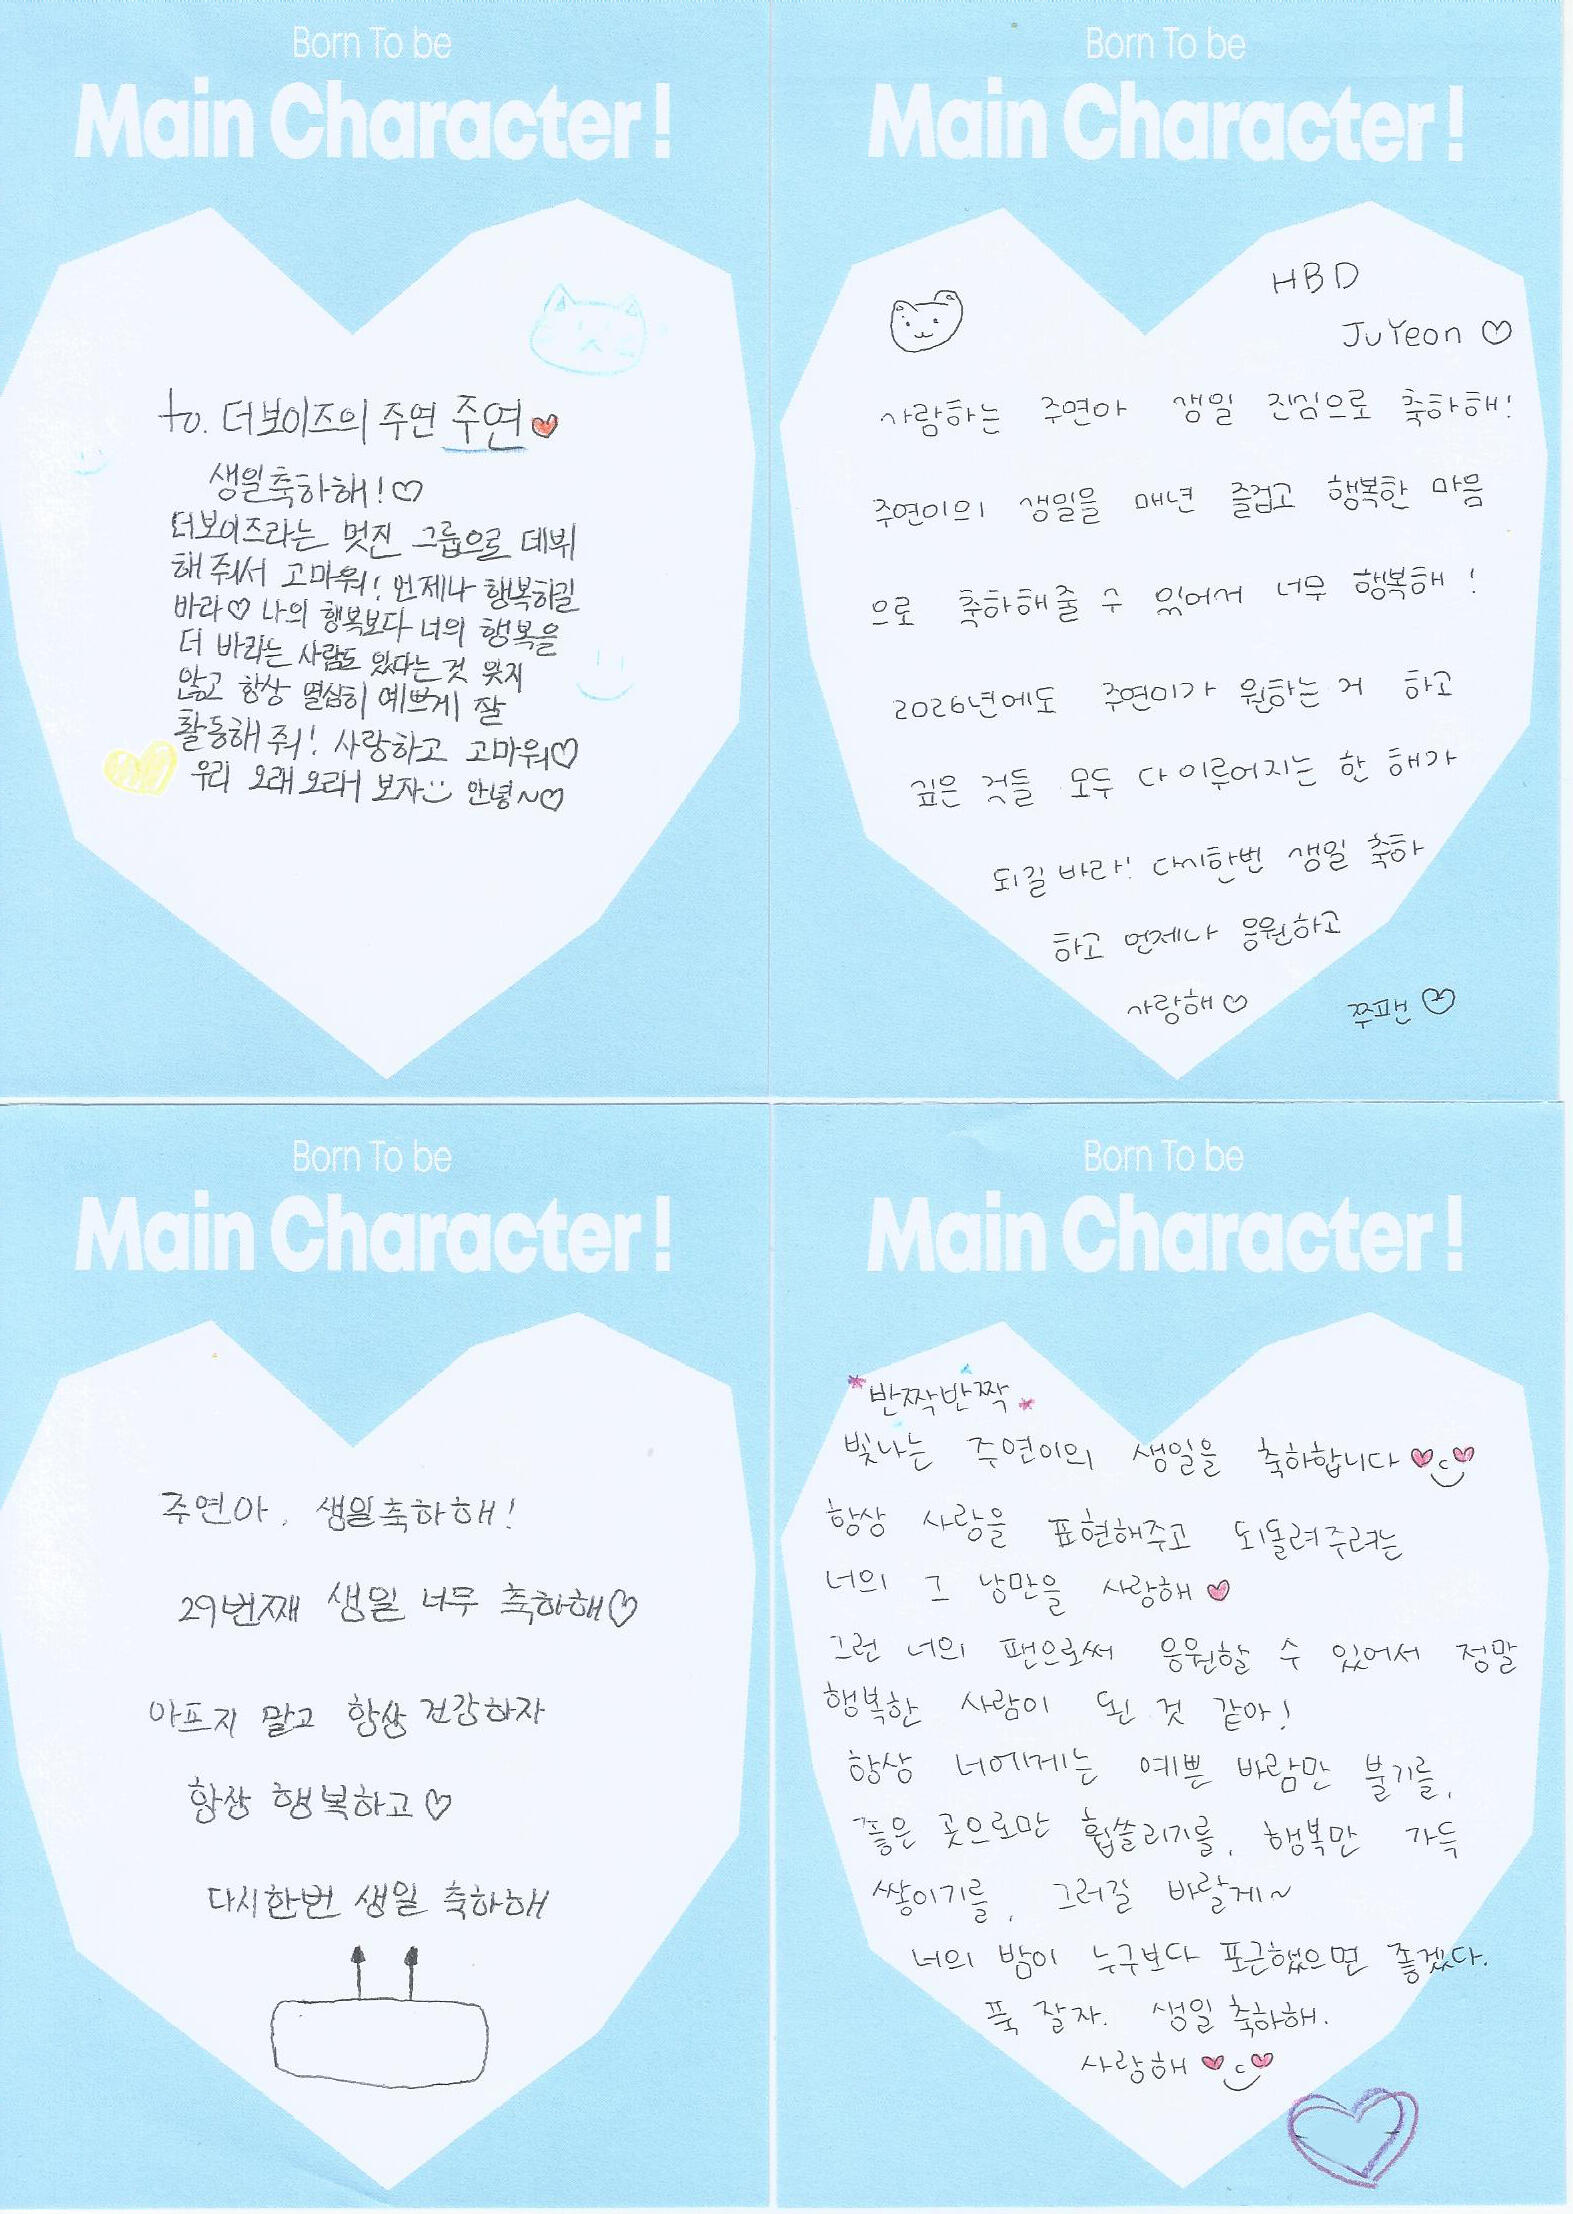 Born To be
Main Character!
to. 더보이즈의 주연 주연♥
생일축하해!♡
더보이즈라는 멋진 그룹으로 데뷔
해 줘서 고마워! 언제나 행복하길
바라♡ 나의 행복보다 너의 행복을
더 바라는 사람도 있다는 것 잊지
않고 항상 열심히 예쁘게 잘
활동해 줘! 사랑하고 고마워♡
우리 오래오래 보자:) 안녕~♡
Born To be
Main Character!
HBD
JuYeon ♡
사랑하는 주연아 생일 진심으로 축하해!
주연이의 생일을 매년 즐겁고 행복한 마음
으로 축하해줄 수 있어서 너무 행복해!
2026년에도 주연이가 원하는 거 하고
싶은 것들 모두 다 이루어지는 한 해가
되길 바라! 다시한번 생일 축하
하고 언제나 응원하고
사랑해♡ 쭈팬♡
Born To be
Main Character!
주연아, 생일축하해!
29번째 생일 너무 축하해♡
아프지 말고 항상 건강하자
항상 행복하고♡
다시한번 생일 축하해
Born To be
Main Character!
*반짝반짝*
빛나는 주연이의 생일을 축하합니다♥
항상 사랑을 표현해주고 되돌려주려는
너의 그 낭만을 사랑해♥
그런 너의 팬으로써 응원할 수 있어서 정말
행복한 사람이 된 것 같아!
항상 너에게는 예쁜 바람만 불기를,
좋은 곳으로만 휩쓸리기를, 행복만 가득
쌓이기를, 그러길 바랄게~
너의 밤이 누구보다 포근했으면 좋겠다.
푹 잘자. 생일 축하해.
사랑해♥